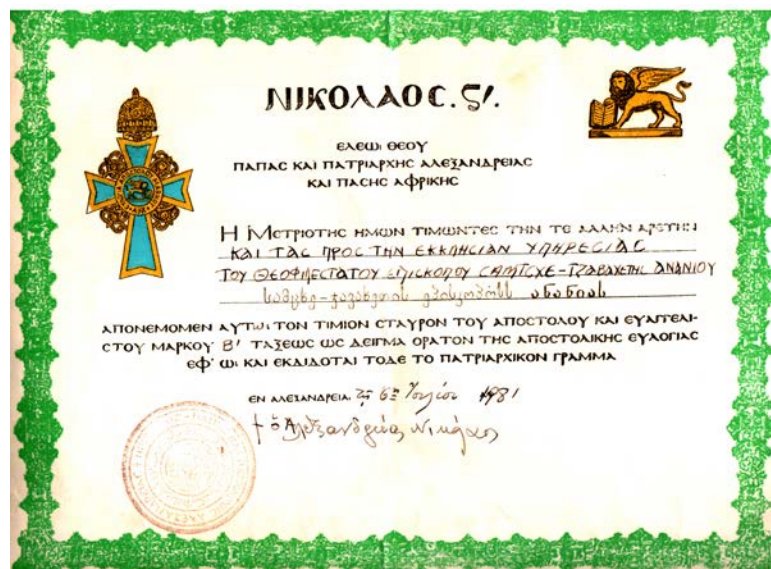 ΝΙΚΟΛΑΟC. Ϛ'.
ΕΛΕῼ ΘΕΟΥ
ΠΑΠΑC ΚΑΙ ΠΑΤΡΙΑΡΧΗC ΑΛΕΞΑΝΔΡΕΙΑC
ΚΑΙ ΠΑCΗC ΑΦΡΙΚΗC
Η ΜΕΤΡΙΟΤΗC ΗΜΩΝ ΤΙΜΩΝΤΕC ΤΗΝ ΤΕ ΑΛΛΗΝ ΑΡΕΤΗΝ
ΚΑΙ ΤΑC ΠΡΟC ΤΗΝ ΕΚΚΛΗCΙΑΝ ΥΠΗΡΕCΙΑC
ΤΟΥ ΘΕΟΦΙΛΕCΤΑΤΟΥ ΕΠΙCΚΟΠΟΥ CΑΜΤCΧΕ-ΤΖΑΒΑΧΕΤΗC ΑΝΑΝΙΟΥ
სამცხე-ჯავახეთის ეპისკოპოსს ანანიას
ΑΠΟΝΕΜΟΜΕΝ ΑΥΤῼ ΤΟΝ ΤΙΜΙΟΝ CΤΑΥΡΟΝ ΤΟΥ ΑΠΟCΤΟΛΟΥ ΚΑΙ ΕΥΑΓΓΕΛΙ-
CΤΟΥ ΜΑΡΚΟΥ Β' ΤΑΞΕΩC ΩC ΔΕΙΓΜΑ ΟΡΑΤΟΝ ΤΗC ΑΠΟCΤΟΛΙΚΗC ΕΥΛΟΓΙΑC
ΕΦ' ῼ ΚΑΙ ΕΚΔΙΔΟΤΑΙ ΤΟΔΕ ΤΟ ΠΑΤΡΙΑΡΧΙΚΟΝ ΓΡΑΜΜΑ
ΕΝ ΑΛΕΞΑΝΔΡΕΙΑ τῇ 6ῃ Ἰουλίου 1981
† ὁ Ἀλεξανδρείας Νικόλαος